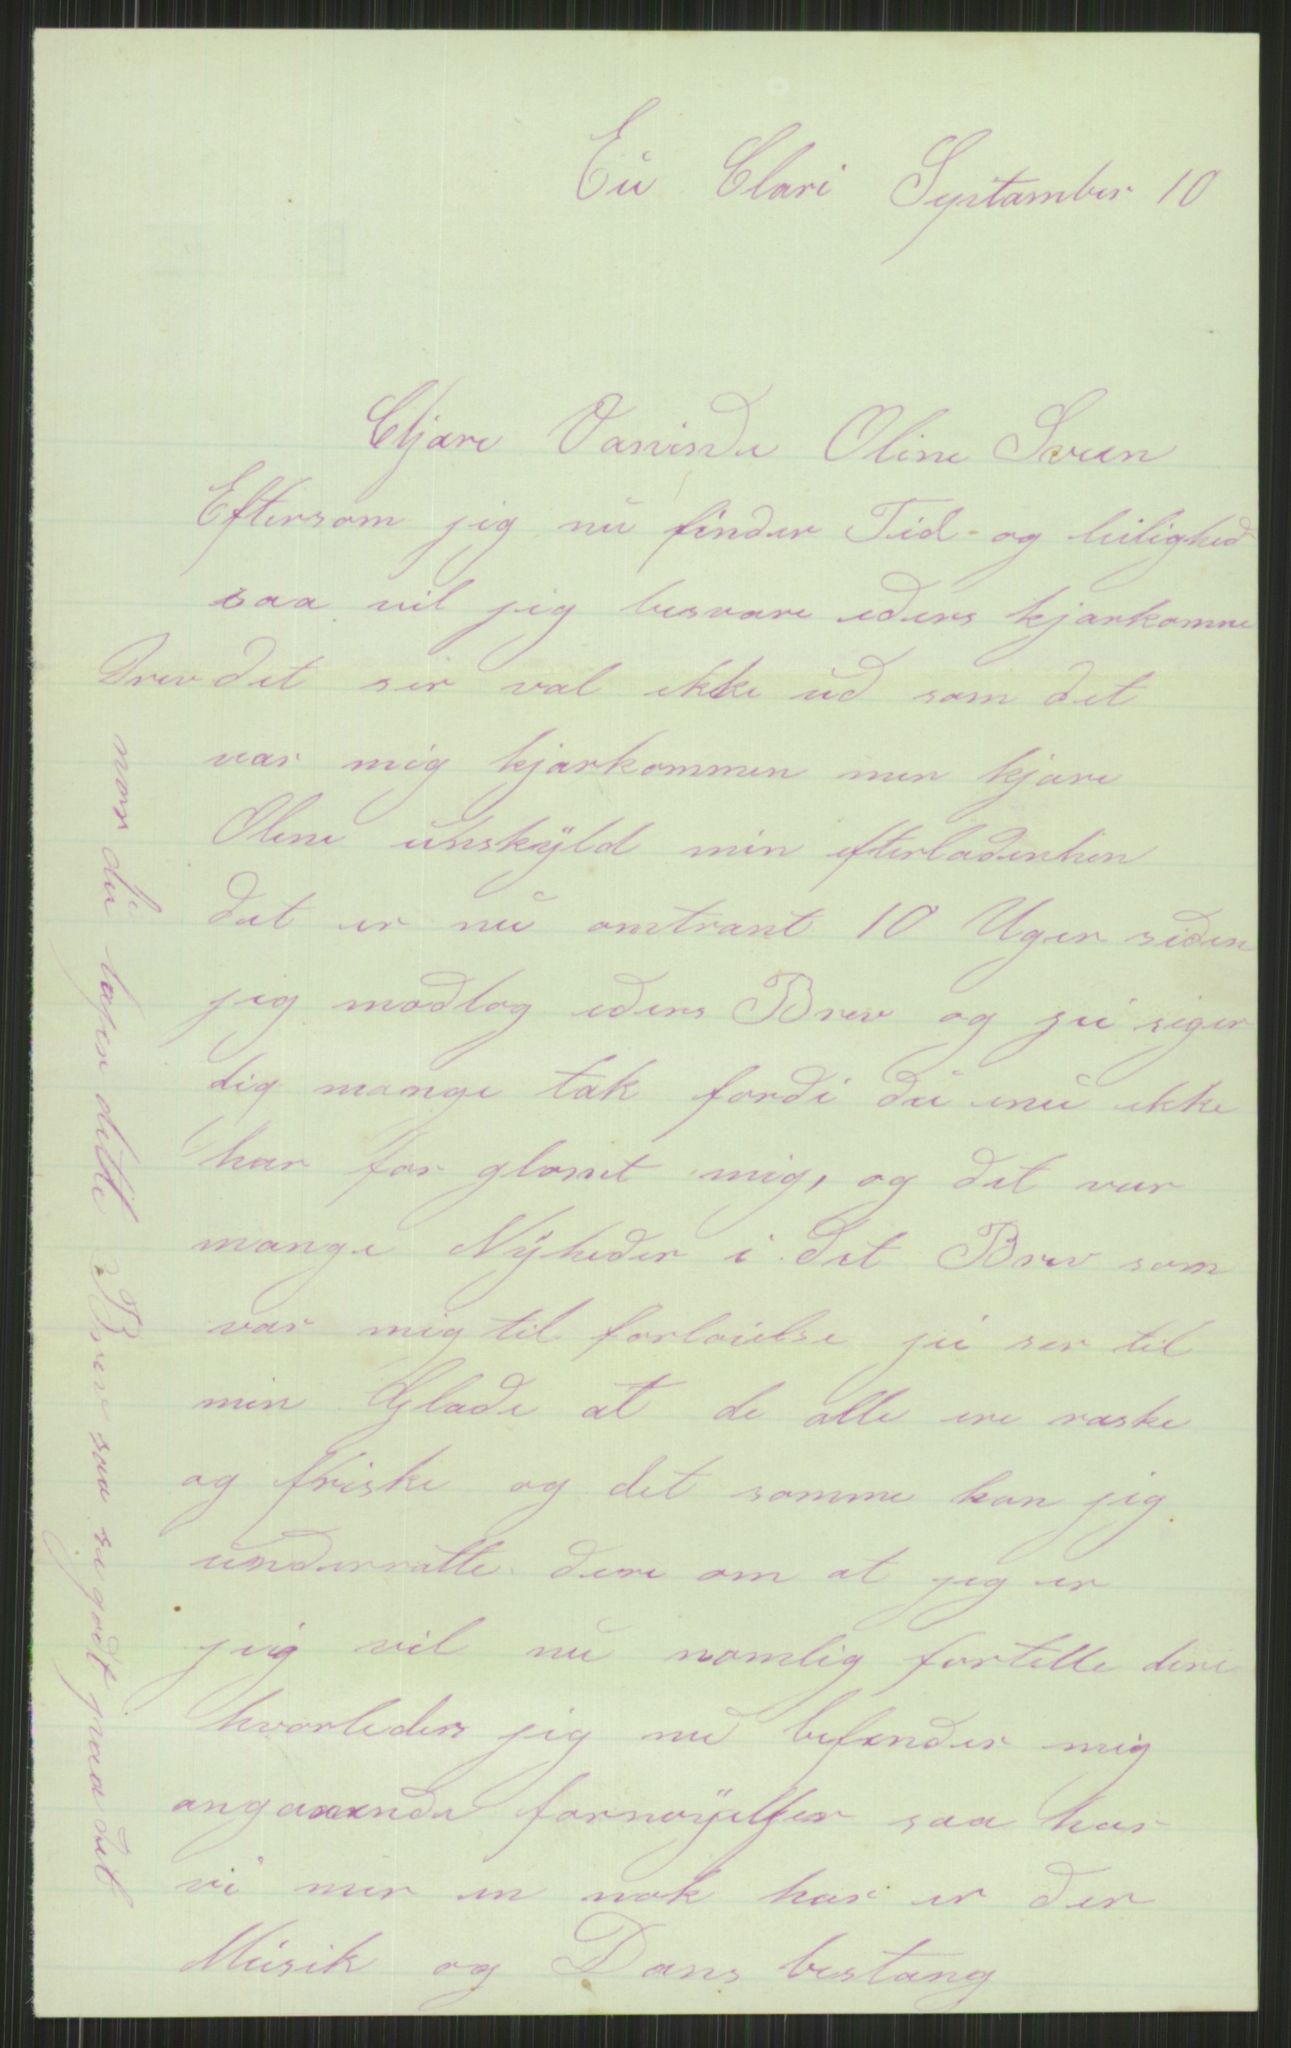 Eu Clari Syptamber 10
Chjære Vaninde Oline Sveen
Eftersom jeg nu finder Tid og leilighed
saa vil jeg besvare eders kjarkomne
Brev det ser val ikke ud som det
var mig kjarkommen men kjare
Oline unskyld min efterladenhen
dat er nu omtrant 10 Uger siden
jeg modtog eders Brev og jei siger
dig mange tak fordi du enu ikke
har for glomt mig, og det var
mange Nyheder i det Brev som
var mig til forloielse jei ser til
min Glade at de alle ere raske
og friske og det samme kan jeg
underratte dere om at jeg er
jeig vil nu namlig fortelle dere
hvorleders jeg nu befinder mig
angaaende fornøyelser saa har
vi mer en nok har er der
Musik og Dans bestang
naar du laser dette Brev saa se godt paa det